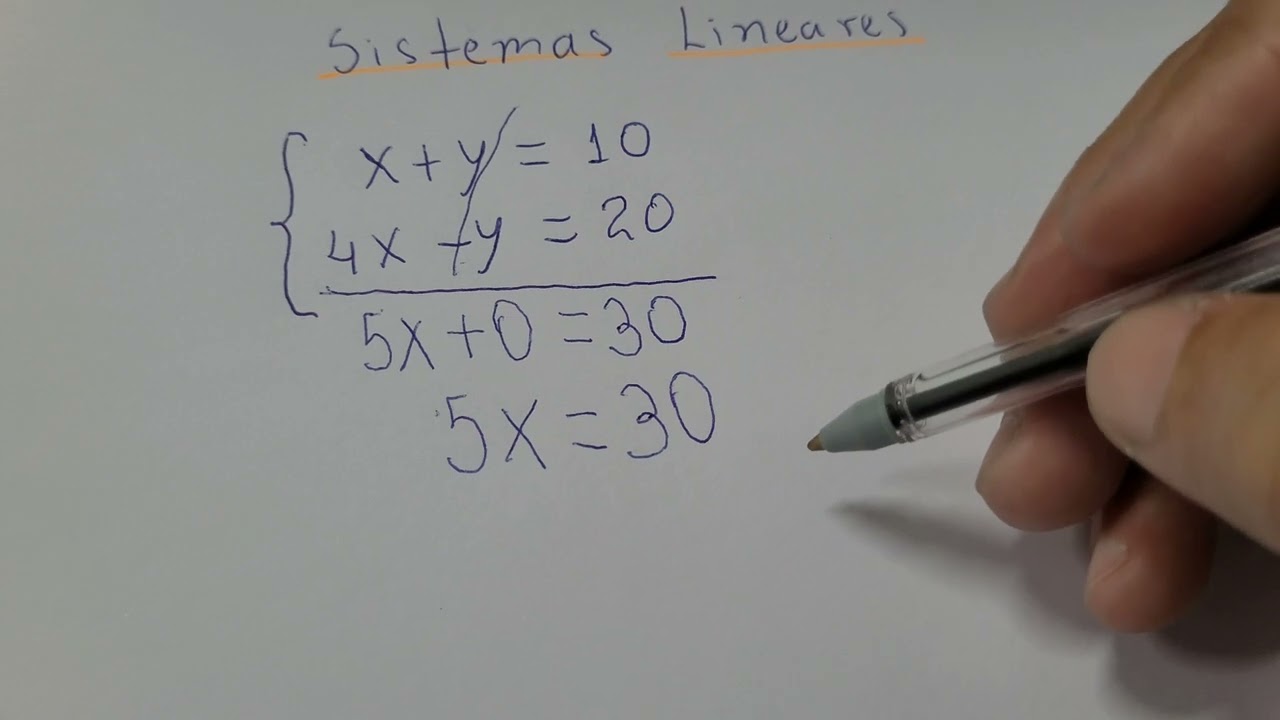 Sistemas Lineares
x + y = 10
4x - y = 20
5x + 0 = 30
5x = 30